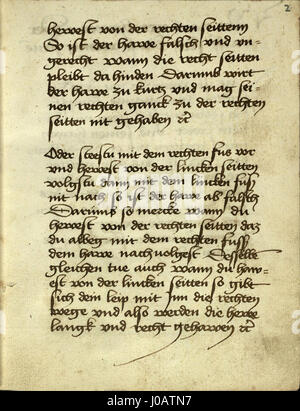 2
hewest von der rechten seittenn
So ist der hawe falsch vnd vn-
gerecht wann die recht seitten
pleibt da hinden Darumb wirt
der hawe zu kurtz vnd mag sei-
nen rechten ganck zu der rechten
seitten nit gehaben ꝛc
Oder steestu mit dem rechten fus vor
vnd hewest von der lincken seitten
volgstu dann mit dem lincken fuß
nit nach so ist der hawe ab falsch
Darumb so mercke wann du
hewest von der rechten seitten daz
du alleg mit dem rechten fuß
dem hawe nachuolgest Desselbē
gleichen tue auch wann du haw-
est von der lincken seitten so gibt
sich dem leip mit jnn die rechten
wege vnd also werden die hewe
langk vnd recht gehawen ꝛc
alamy stock photo
J0ATN7